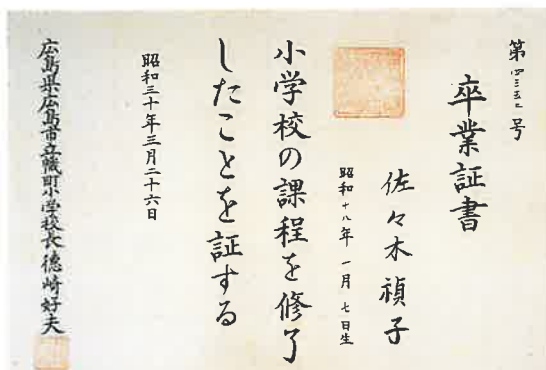 第四三五二号
卒業証書
佐々木禎子
昭和十八年一月七日生
小学校の課程を修了
したことを証する
昭和三十年三月二十六日
広島県広島市立幟町小学校長徳崎好夫